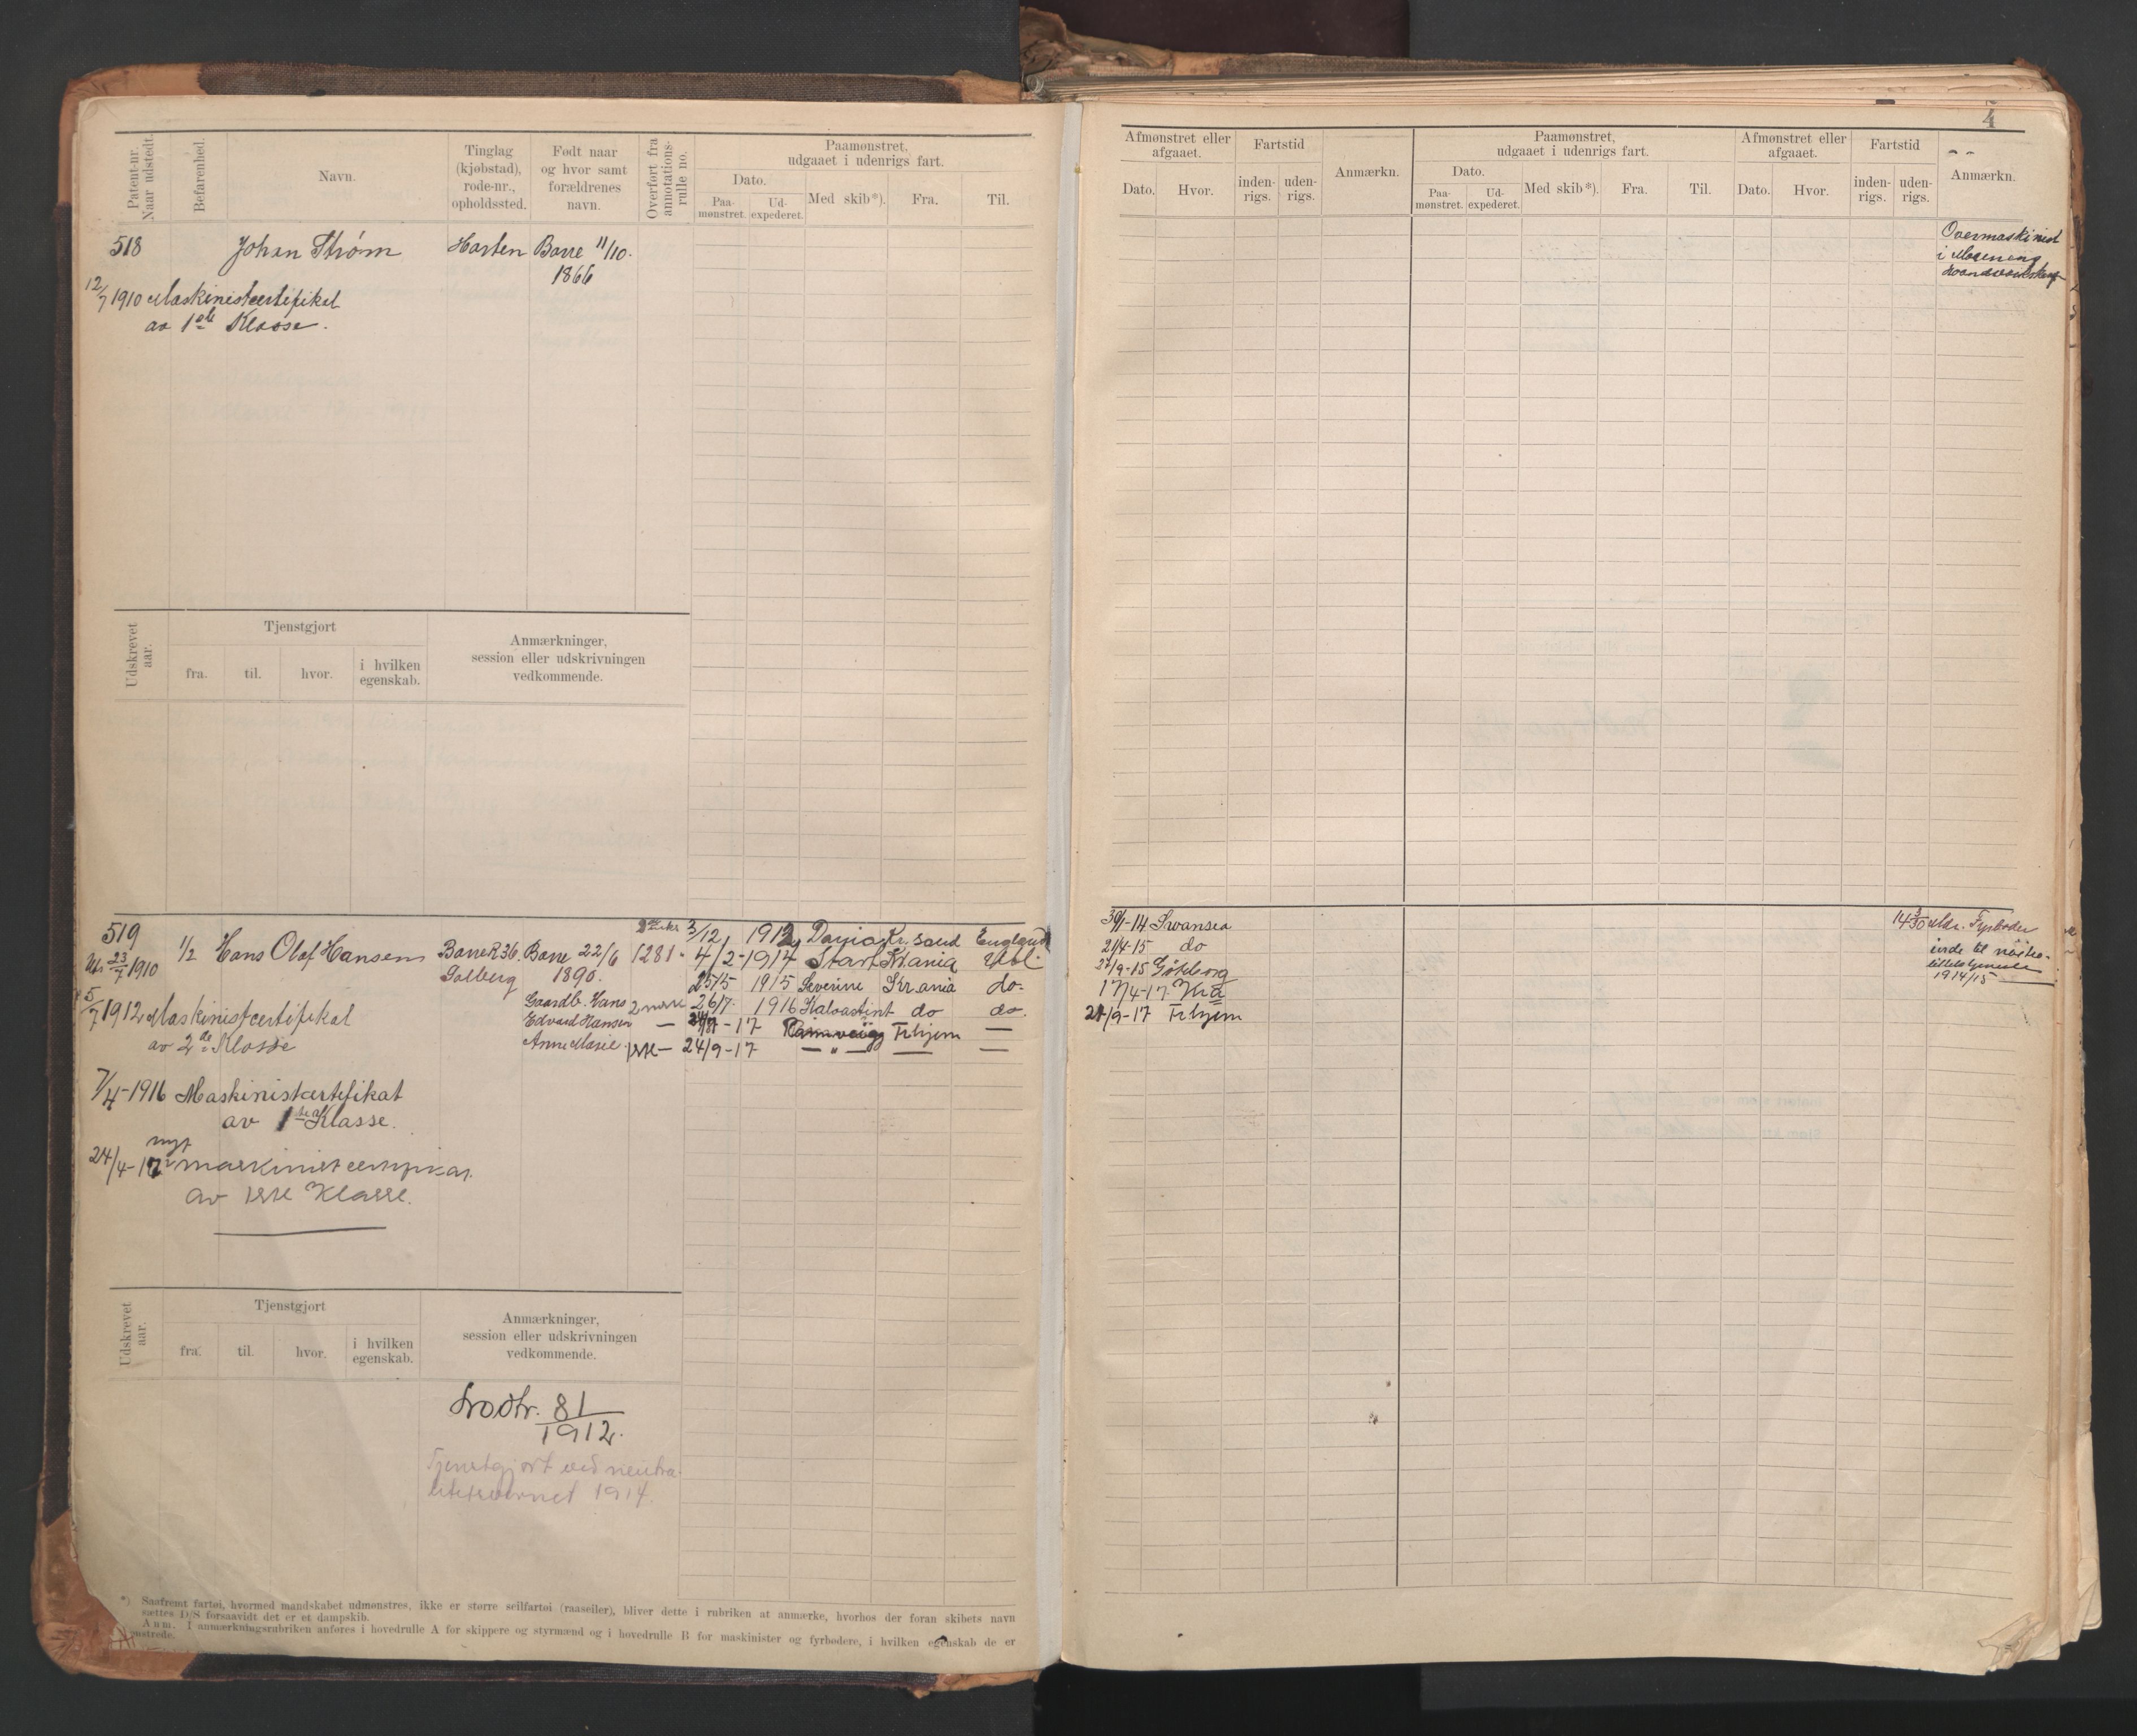 Patent-nr. Naar udstedt.
Befarenhed.
Navn.
Tinglag (kjøbstad), rode-nr., opholdssted.
Født naar og hvor samt forældrenes navn.
Overført fra annotations-rulle no.
Paamønstret, udgaaet i udenrigs fart.
Dato.
Paa-mønstret.
Ud-expederet.
Med skib*).
Fra.
Til.
518 Johan Strøm Horten Borre 11/10.
1866
12/7 1910 Maskinistcertifikat
av 1ste Klasse.
Udskrevet aar.
Tjenstgjort
fra. til. hvor. i hvilken egenskab.
Anmærkninger, session eller udskrivningen vedkommende.
519
23/7 1910 1/2 Hans Olaf Hansen Borre R 36. Borre 22/6 1281 3/12 1912 Kr.sand England
Solberg 1890. 4/2-1914 Start Kr.ania
25/5 1915 Severine Kr.ania do.
5/7 1912 Maskinistcertifikat Gaardb. Hans 26/7. 1916 do do.
av 2de Klasse Edvard Hansen — -17 Trhjem —
Anne Marie 24/9-17 — " — — —
7/4-1916 Maskinistcertifikat
av 1ste Klasse.
nyt
24/4-17 maskinistcertifikat
av 1ste Klasse.
Udskrevet aar.
Tjenstgjort
fra. til. hvor. i hvilken egenskab.
Anmærkninger, session eller udskrivningen vedkommende.
81
1912.
Tjenstgjort ved neutra-
litetsvernet 1914.
*) Saafremt fartøi, hvormed mandskabet udmønstres, ikke er større seilfartøi (raaseiler), bliver dette i rubriken at anmærke, hvorhos der foran skibets navn
sættes D/S forsaavidt det er et dampskib.
Anm. I anmærkningsrubriken anføres i hovedrulle A for skippere og styrmænd og i hovedrulle B for maskinister og fyrbødere, i hvilken egenskab de er
mønstrede.
4
Afmønstret eller afgaaet.
Dato. Hvor.
Fartstid
inden-rigs. uden-rigs.
Anmærkn.
Paamønstret, udgaaet i udenrigs fart.
Dato.
Paa-mønstret. Ud-expederet.
Med skib*). Fra. Til.
Afmønstret eller afgaaet.
Dato. Hvor.
Fartstid
inden-rigs. uden-rigs.
Anmærkn.
Overmaskinist
i Marinens
30/1-14 Swansea
21/4-15 do
Göteborg
17/4-17 Kra
-17 Trhjem
Fyrbøder
1914/15